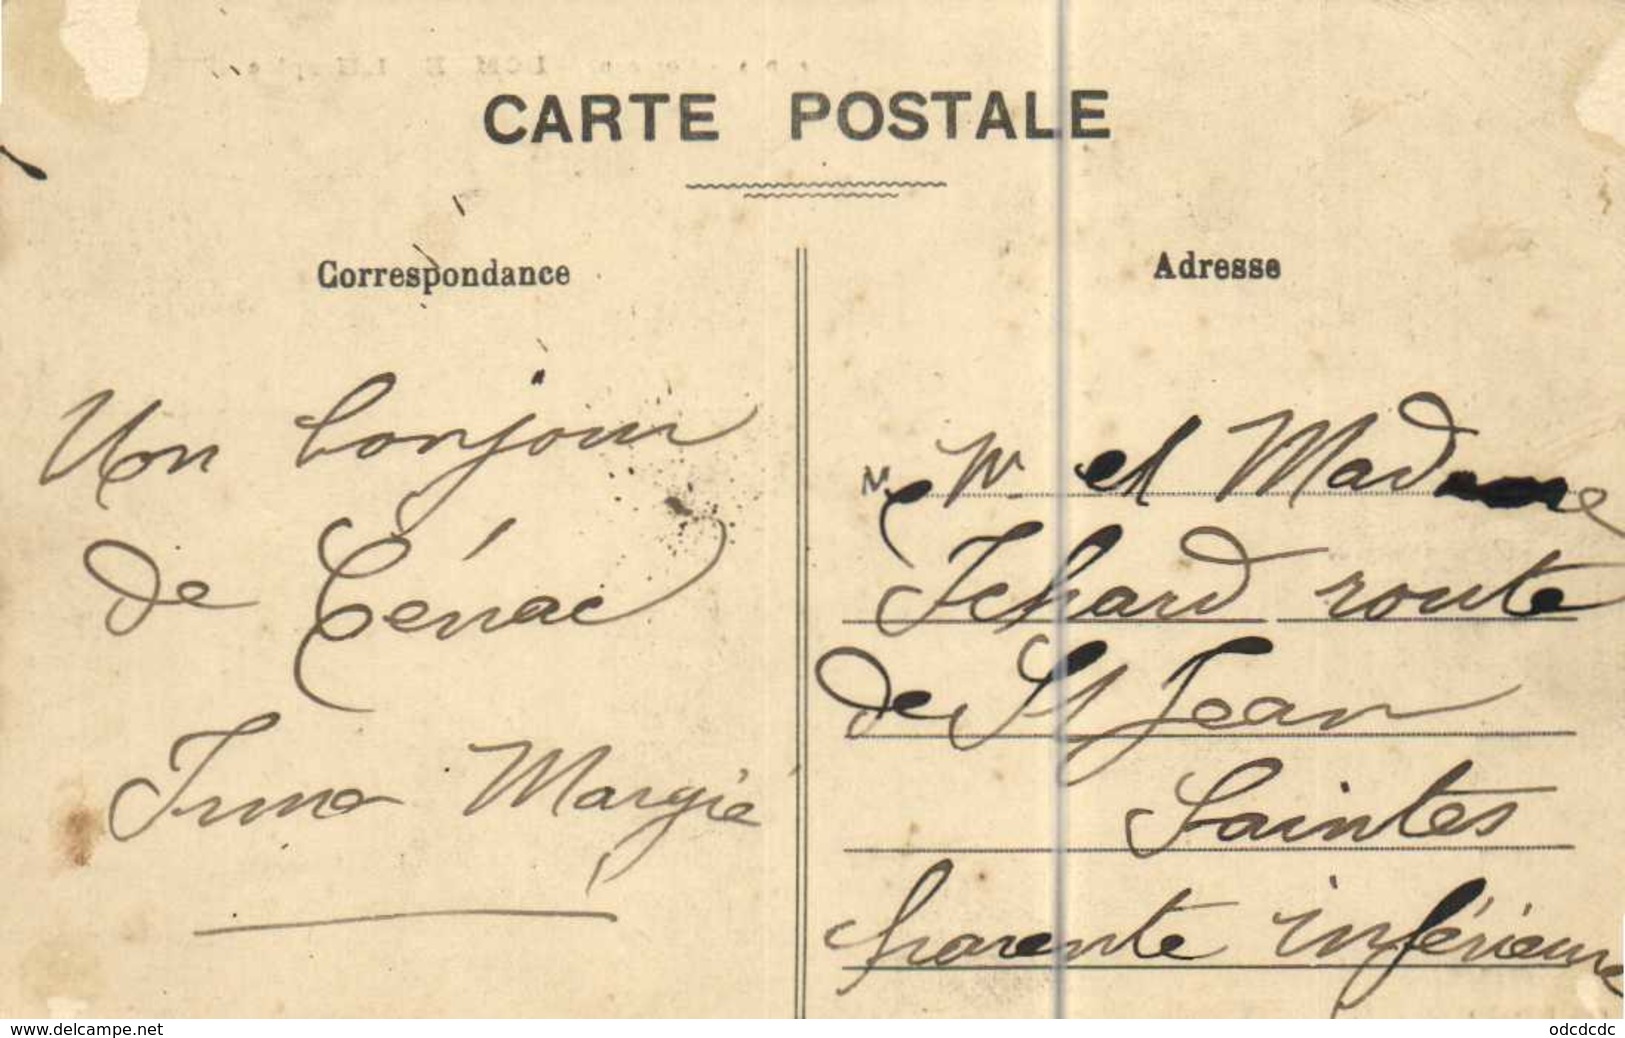 CARTE POSTALE
Correspondance
Un bonjour
de Cénac
Irma Margié
Adresse
M et Madame
Ichard route
de St Jean
Saintes
charente inférieure
www.delcampe.net
odcdcdc